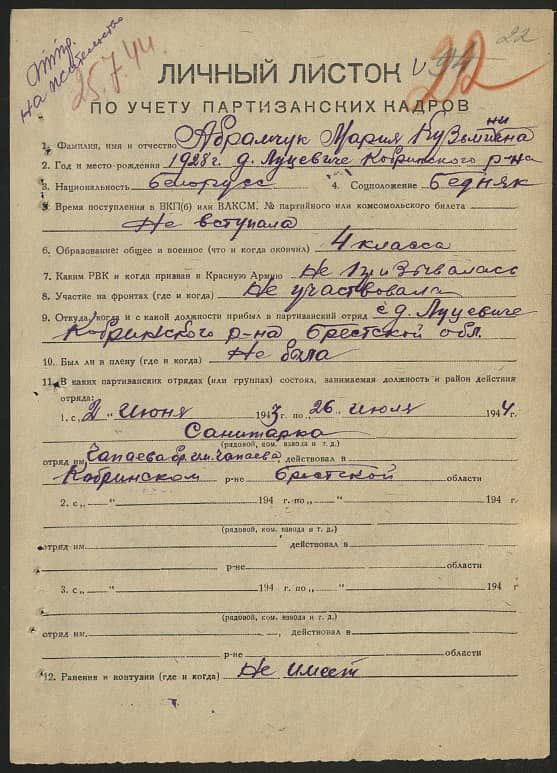 отпр.
на жительство
25.7.44.
22
ЛИЧНЫЙ ЛИСТОК
22
ПО УЧЕТУ ПАРТИЗАНСКИХ КАДРОВ
1. Фамилия, имя и отчество Абрамчук Мария Кузьминична
2. Год и место рождения 1928 г. д. Луцевиче Кобринского р-на
3. Национальность белорусс 4. Соцположение бедняк
5. Время поступления в ВКП(б) или ВЛКСМ. № партийного или комсомольского билета
Не вступала
6. Образование: общее и военное (что и когда окончил) 4 класса
7. Каким РВК и когда призван в Красную Армию Не призывалась
8. Участие на фронтах (где и когда) Не участвовала
9. Откуда, когда и с какой должности прибыл в партизанский отряд с д. Луцевиче
Кобринского р-на Брестской обл.
10. Был ли в плену (где и когда) Не была
11. В каких партизанских отрядах (или группах) состоял, занимаемая должность и район действия
отряда:
1. с „2 июня 1943 г. по „26„ июля 1944 г.
Санитарка
(рядовой, ком. взвода и т. д.)
отряд им. Чапаева бр. им. Чапаева, действовал в
Кобринском р-не Брестской области
2. с „ “ 194 г. по „ “ 194 г.
(рядовой, ком. взвода и т. д.)
отряд им. действовал в
р-не области
3. с „ “ 194 г. по „ “ 194 г.
(рядовой, ком. взвода и т. д.)
отряд им. , действовал в
р-не области
12. Ранения и контузии (где и когда) Не имеет